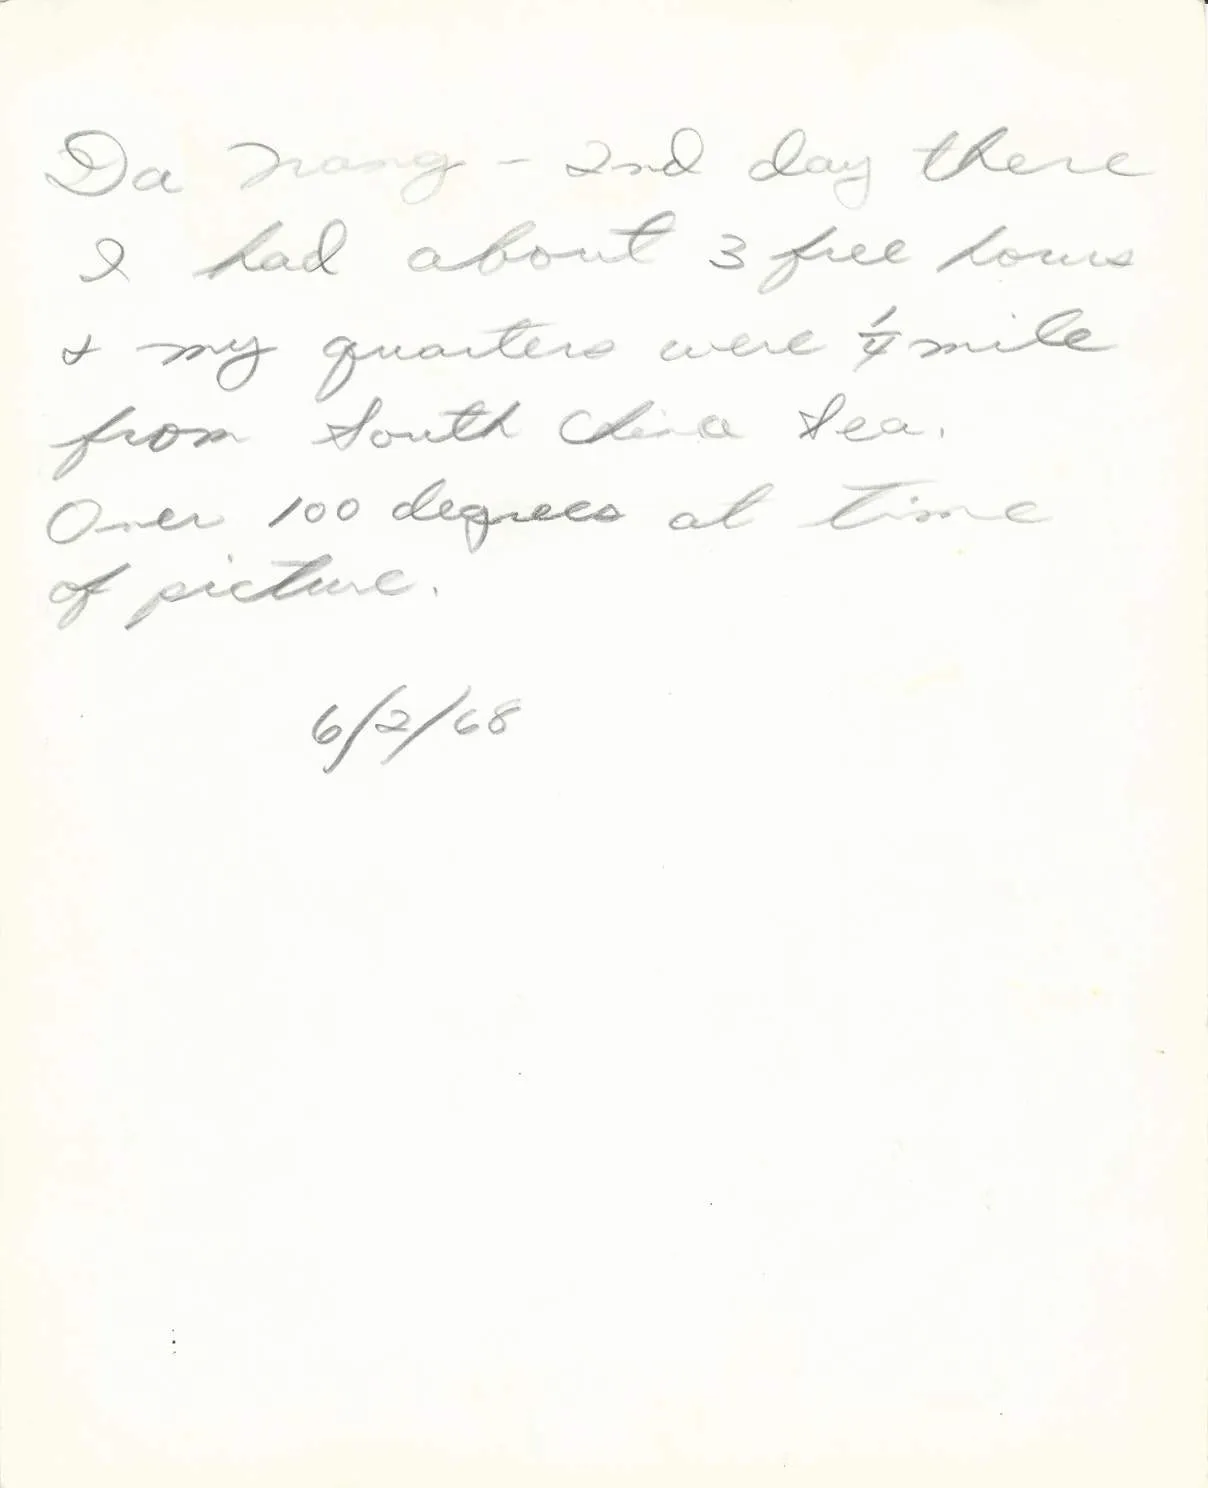 Da Nang - 2nd day there
I had about 3 free hours
& my quarters were 1/4 mile
from South China Sea.
Over 100 degrees at time
of picture.
6/2/68